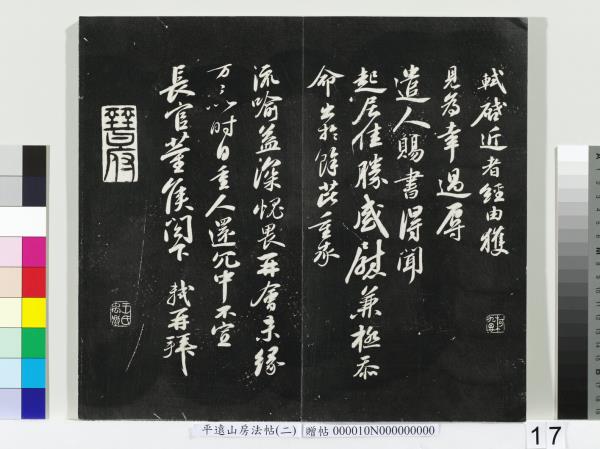 軾啓近者經由獲
見為幸過辱
遣人賜書得聞
起居佳勝感慰兼極忝
命出於餘芘重承
流喻益深愧畏再會未緣
万万以時自重人還冗中不宣
長官董侯閣下 軾再拜
晉府
平遠山房法帖(二) 贈帖 000010N000000000
17